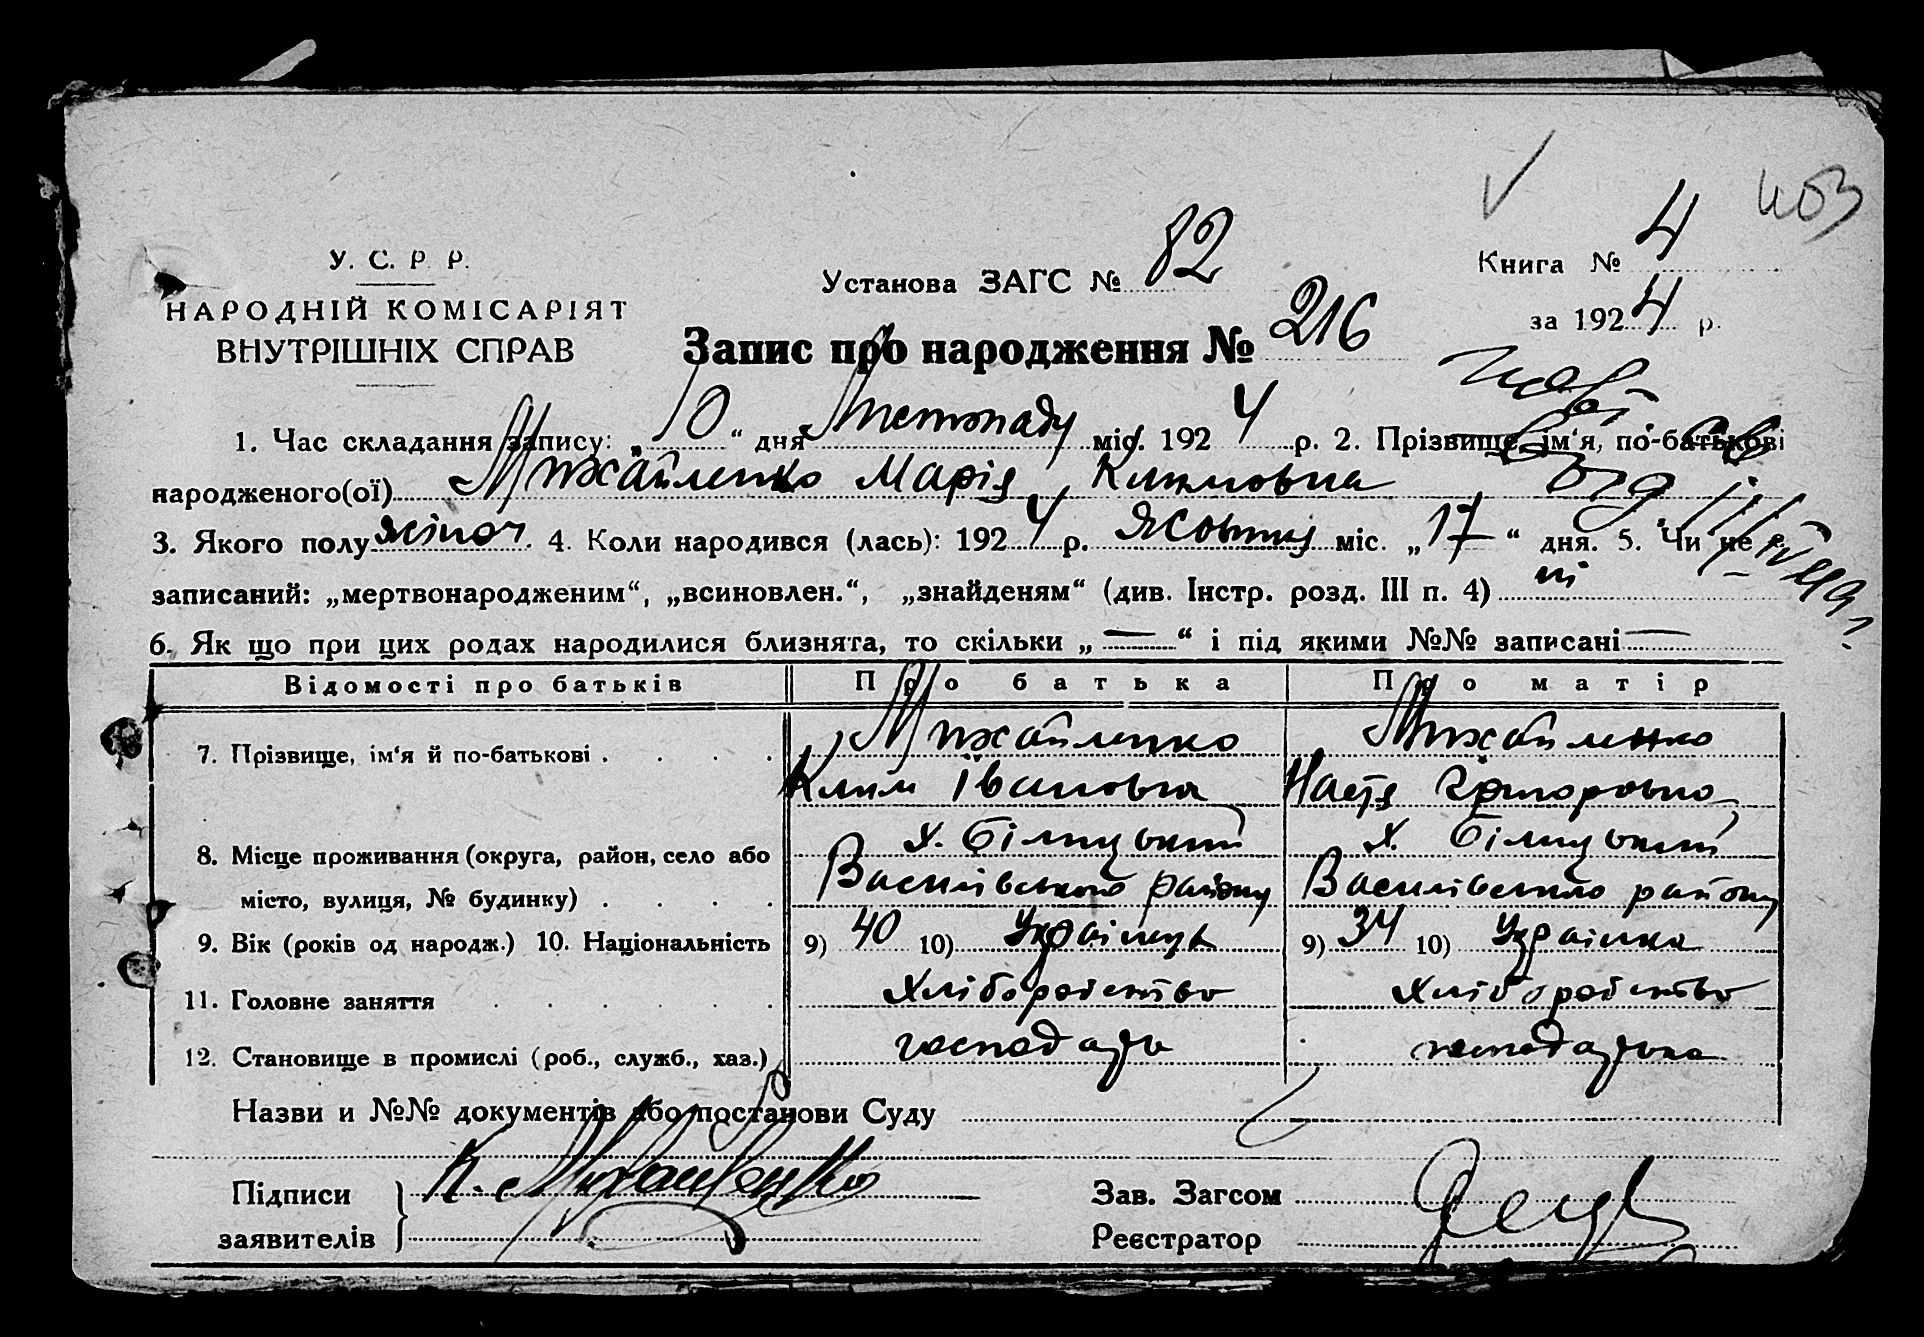 403
У. С. Р. Р.
НАРОДНІЙ КОМІСАРІЯТ
ВНУТРІШНІХ СПРАВ
Установа ЗАГС № 82
Запис про народження № 216
Книга № 4
за 1924 р.
1. Час складання запису: „10“ дня Листопаду міс. 1924 р. 2. Прізвище, ім‘я, по-батькові
народженого(ої) Михайленко Марія Климовна
3. Якого полу жіноч. 4. Коли народився (лась): 1924 р. Жовтня міс. „17“ дня. 5. Чи не є
записаний: „мертвонародженим“, „всиновлен.“, „знайденям“ (див. Інстр. розд. III п. 4) ні
6. Як що при цих родах народилися близнята, то скільки „—“ і під якими №№ записані —
Відомості про батьків Про батька Про матір
7. Прізвище, ім‘я й по-батькові . . . . Михайленко Михайленко
Клим Іванович Настя Григоровна
8. Місце проживання (округа, район, село або х. Білицький х. Білицький
місто, вулиця, № будинку) . . . . Василівського району Василівського району
9. Вік (років од народж.) 10. Національність 9) 40 10) Українець 9) 34 10) Українка
11. Головне заняття . . . . Хліборобство Хліборобство
12. Становище в промислі (роб., служб., хаз.) господарь господарка
Назви и №№ документів або постанови Суду
Підписи К. Михайленко Зав. Загсом
заявителів Реєстратор